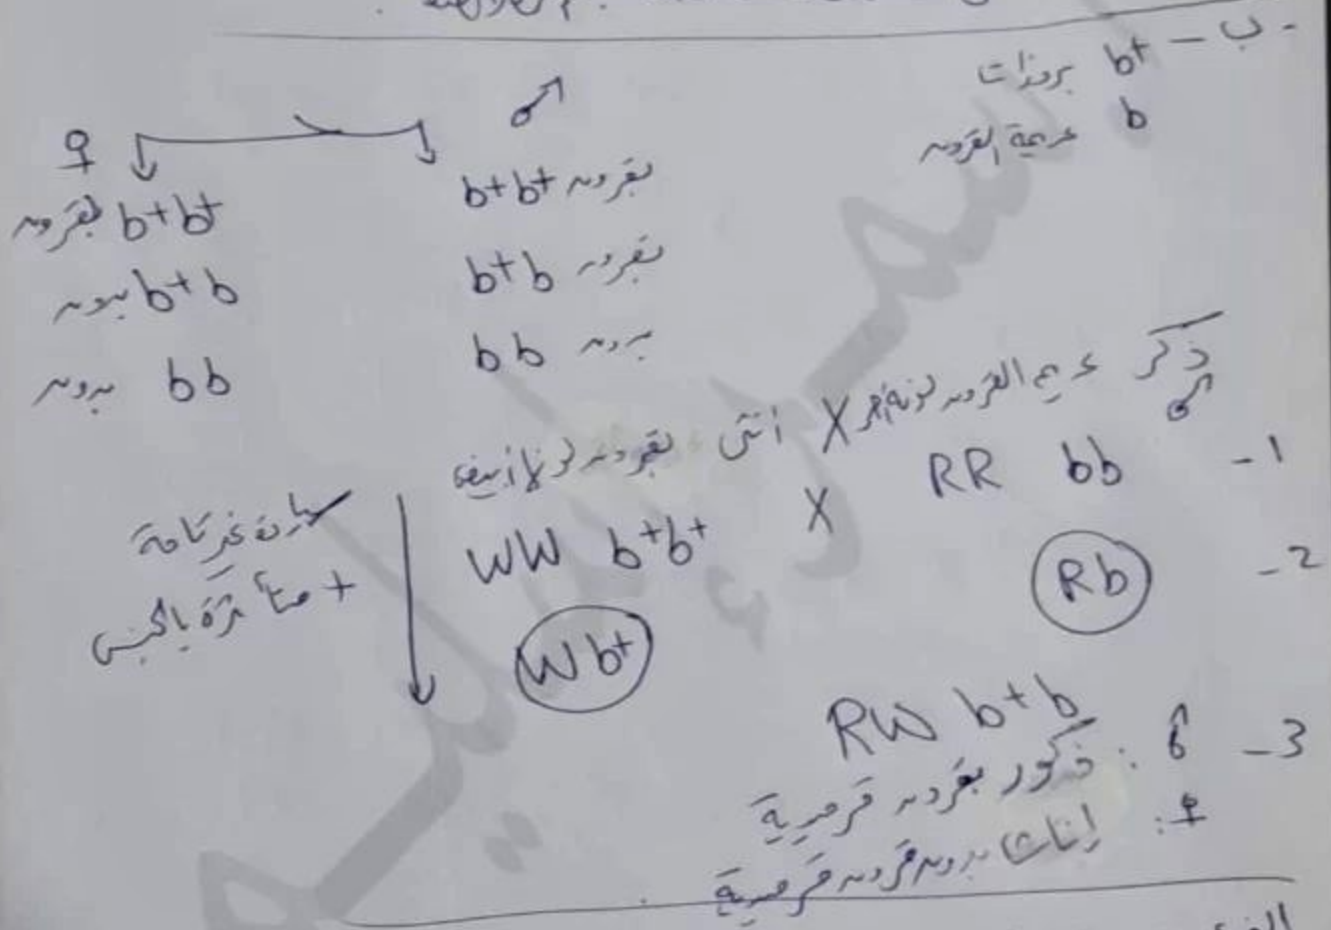 - ب - b+ بروزات
b عديمة القرون
♂ ♀
b+b+ بقرون
b+b+ بقرون
b+b بقرون
b+b بدون
bb بدون
bb بدون
ذكر عديم القرون لونه أحمر X أنثى بقرون لونها أبيض
♂
1- RR bb X WW b+b+
سيادة غير تامة
+ متأثرة بالجنس
2- Rb Wb+
RW b+b
3- ♂ : ذكور بقرون قرميدية
♀ : إناث بدون قرون قرميدية